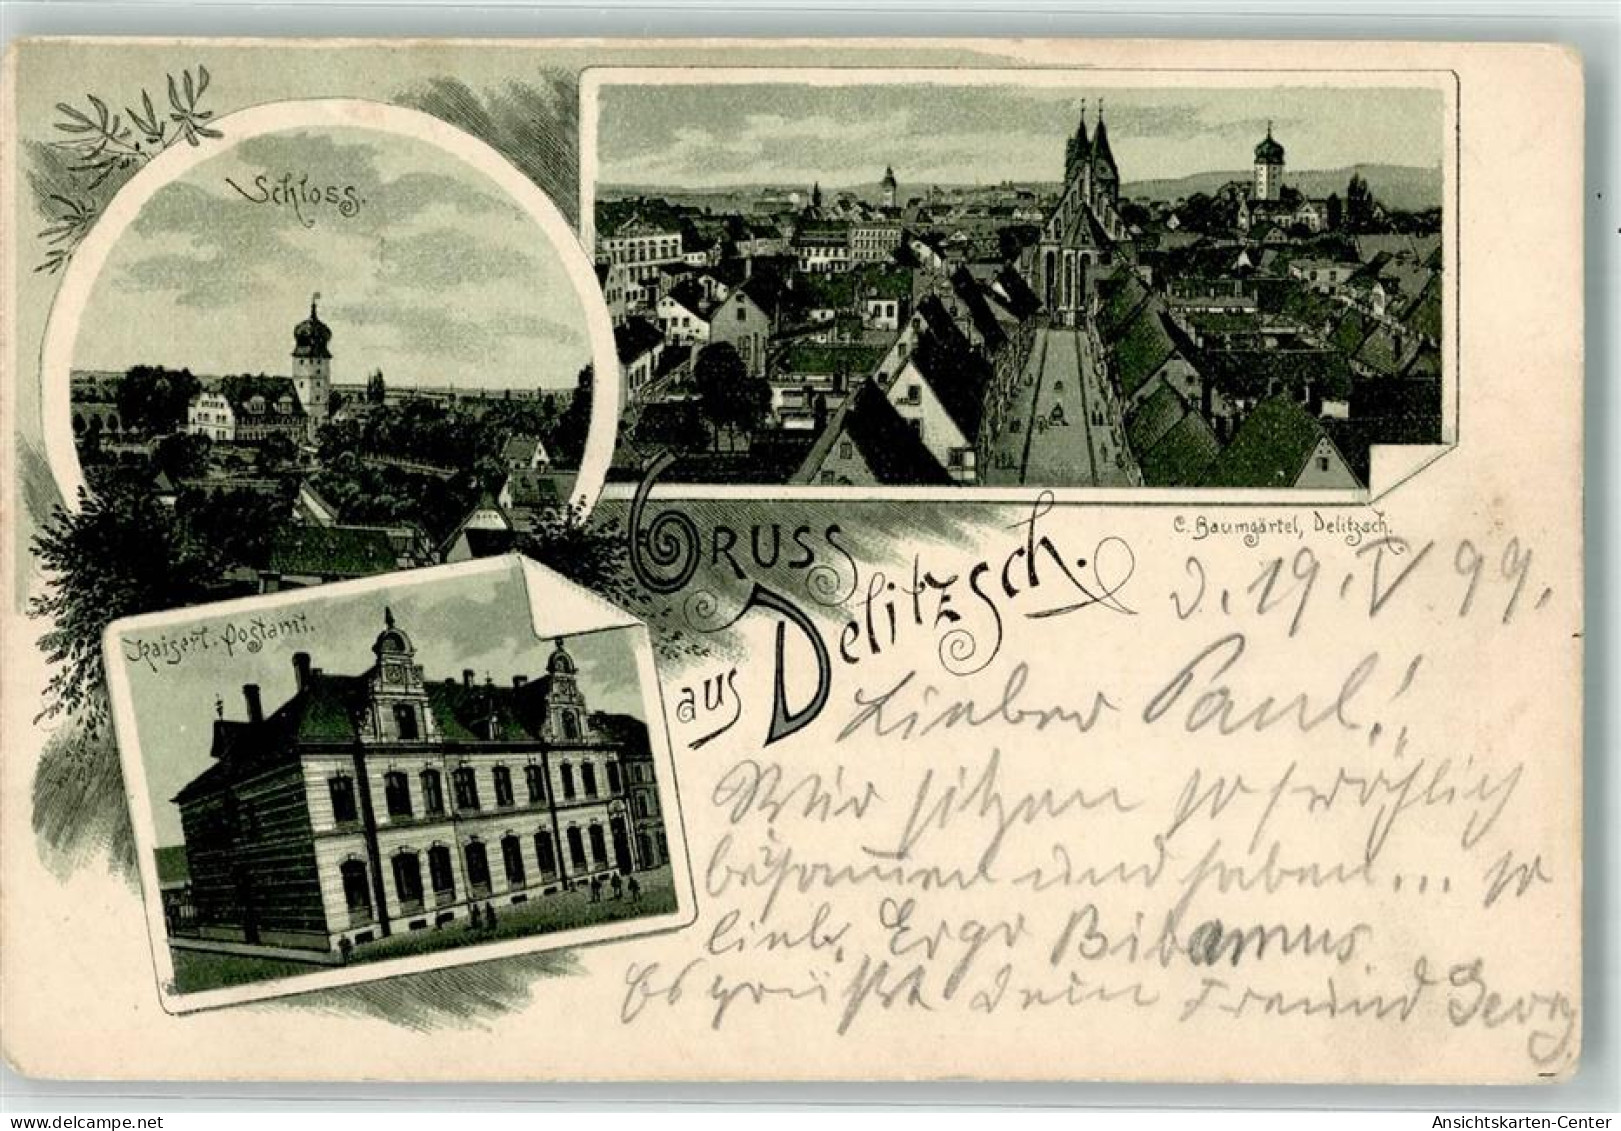 Schloss.
Kaiserl. Postamt.
Gruss
aus Delitzsch.
C. Baumgärtel, Delitzsch.
d. 19. V 99.
Lieber Paul!
Wir sitzen so fröhlich
beisammen und haben... so
lieb, Ergo Bibamus
Es grüßt Dein Freund Georg
Ansichtskarten-Center